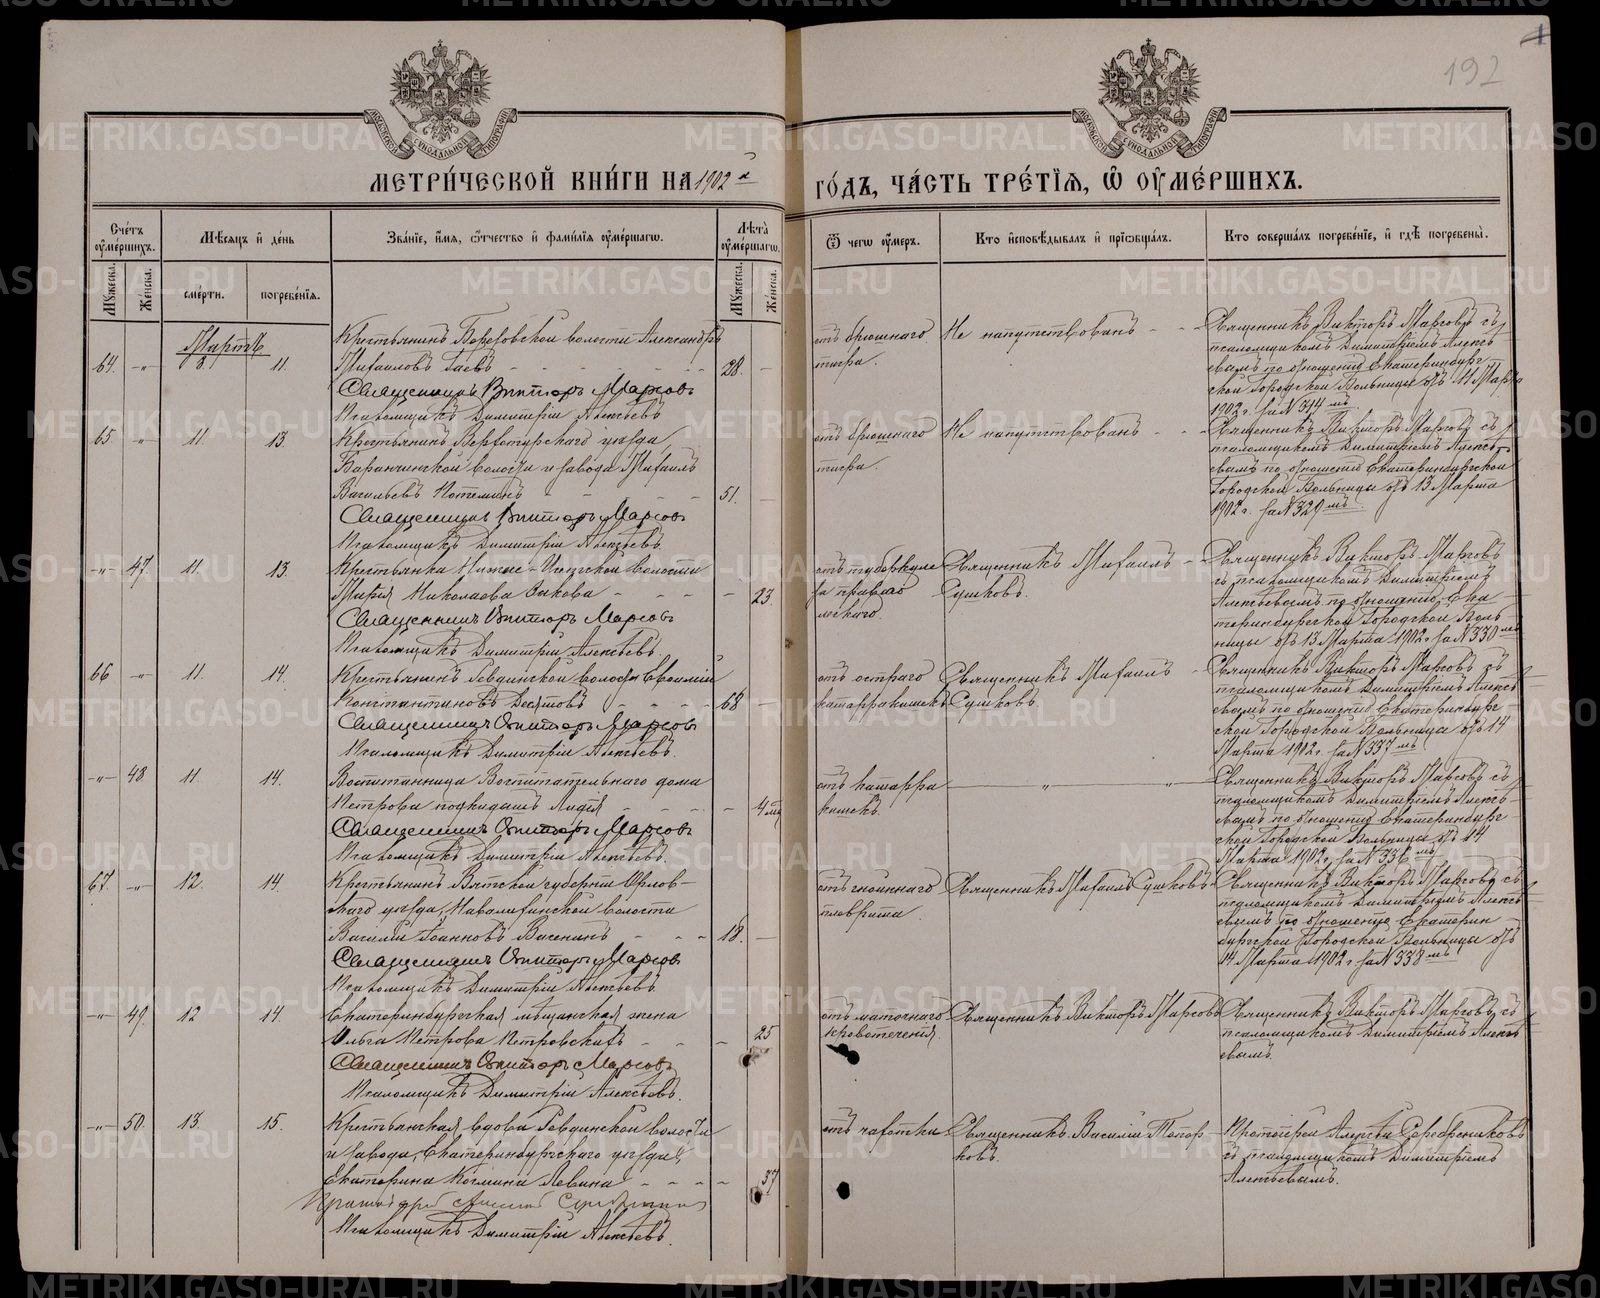 192
МЕТРИ́ЧЕСКОЙ КНИ́ГИ НА 1902 й
ГО́ДЪ, ЧА́СТЬ ТРЕ́ТІѦ, Ѡ ОУМЕ́РШИХЪ.
Сче́тъ оумéршихъ.
Мѣсяцъ и де́нь
Зва́ніе, и́мя, ѻтчество и фами́лія оумéршагѡ.
Лѣта̀ оумéршагѡ.
Ѿ чегѡ оумеръ.
Кто исповѣдывалъ и пріѡбщалъ.
Кто совершалъ погребéніе, и гдѣ погребены̀.
Мужеска.
Женска.
смерти.
погребенія.
Мужеска.
Женска.
Мартъ
64. -„- 8. 11.
Крестьянинъ Александръ
Михаиловъ Гаевъ 28.
Священникъ Викторъ Марсовъ
Псаломщикъ Димитрій Алексѣевъ
отъ брюшнаго
тифа.
Не напутствованъ
Священникъ Викторъ Марсовъ съ
псаломщикомъ Димитріемъ Алексѣ-
евымъ по отношенію Екатеринбург-
ской Городской Больницы отъ 11 Марта
1902 г. за № 314 мъ
65 „ 11. 13
Крестьянинъ Верхотурскаго уѣзда
Баранчинской волости и завода Михаилъ
Васильевъ Потемкинъ 51.
Священникъ Викторъ Марсовъ
Псаломщикъ Димитрій Алексѣевъ
отъ брюшнаго
тифа.
Не напутствованъ
Священникъ Викторъ Марсовъ съ
псаломщикомъ Димитріемъ Алексѣ-
евымъ по отношенію Екатеринбургской
Городской Больницы отъ 13 Марта
1902 г. за № 329 мъ
-„- 47. 11. 13.
Крестьянка волости
Марія Николаева 23
Священникъ Викторъ Марсовъ
Псаломщикъ Димитрій Алексѣевъ.
отъ туберкуле
за праваго
легкаго.
Священникъ Михаилъ
Сушковъ.
Священникъ Викторъ Марсовъ
съ псаломщикомъ Димитріемъ
Алексѣевымъ по отношенію Ека-
теринбургской Городской Боль
ницы отъ 13 Марта 1902 г. за № 330 мъ
66 -„- 11. 14.
Крестьянинъ Ревдинской волости Евфимій
Константиновъ 68
Священникъ Викторъ Марсовъ
Псаломщикъ Димитрій Алексѣевъ.
отъ остраго
катарра кишекъ
Священникъ Михаилъ
Сушковъ.
Священникъ Викторъ Марсовъ съ
псаломщикомъ Димитріемъ Алексѣ
евымъ по отношенію Екатеринбург-
ской Городской Больницы отъ 14
Марта 1902 г. за № 337 мъ
-„- 48 11. 14.
Воспитанница Воспитательнаго дома
Петрова подкидышъ Лидія 4 мѣс
Священникъ Викторъ Марсовъ
Псаломщикъ Димитрій Алексѣевъ.
отъ катарра
кишекъ.
Священникъ Викторъ Марсовъ съ
псаломщикомъ Димитріемъ Алексѣ-
евымъ по отношенію Екатеринбург-
ской Городской Больницы отъ 14
Марта 1902 г. за № 336 мъ
67. -„- 12. 14.
Крестьянинъ Вятской губерніи Орлов-
скаго уѣзда, волости
Василій Іоанновъ Васенинъ 18.
Священникъ Викторъ Марсовъ
Псаломщикъ Димитрій Алексѣевъ.
отъ гнойнаго
плеврита.
Священникъ Михаилъ Сушковъ.
Священникъ Викторъ Марсовъ съ
псаломщикомъ Димитріемъ Алексѣ
евымъ по отношенію Екатерин
бургской Городской Больницы отъ
14 Марта 1902 г. за № 338 мъ
-„- 49. 12 14
Екатеринбургская мѣщанская жена
Ольга Петрова Петровскихъ 25
Священникъ Викторъ Марсовъ
Псаломщикъ Димитрій Алексѣевъ.
отъ маточнаго
кровотеченія.
Священникъ Викторъ Марсовъ
Священникъ Викторъ Марсовъ съ
псаломщикомъ Димитріемъ Алексѣ
евымъ.
-„- 50. 13. 15.
Крестьянская вдова Ревдинской волости
и завода, Екатеринбургскаго уѣзда,
Екатерина Козмина Левина 37
Псаломщикъ Димитрій Алексѣевъ.
отъ чахотки
Священникъ Василій Топор
ковъ.
Протоіерей Алексѣй Серебренниковъ
съ псаломщикомъ Димитріемъ
Алексѣевымъ.
METRIKI.GASO-URAL.RU